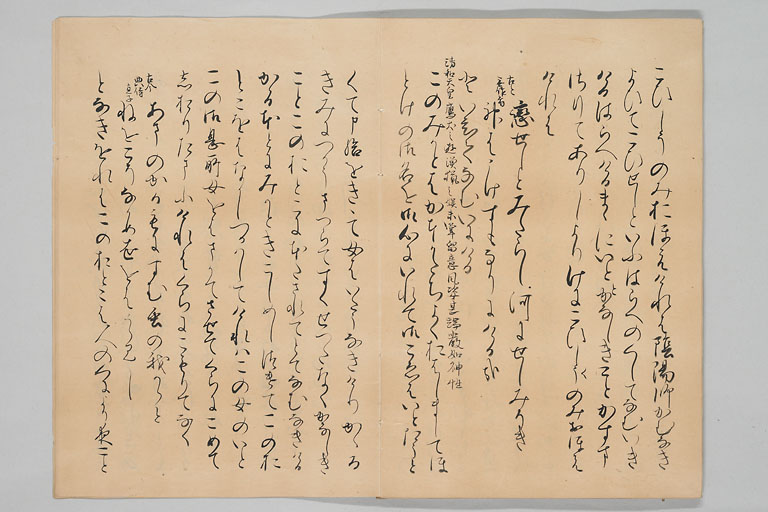 こひしうのみおほえけれは陰陽師かむなき
よひてこひせしといふはらへのくしてなむいき
けるはらへけるまゝにいとゝかなしきことかすま
さりてありしよりけにこひしくのみおほえ
けれは
戀せしとみたらし河にせしみそき
神はうけすもなりにけるかな
といひてなむいにける
清和天皇鷹犬之遊漁猟之娯未嘗留意風姿甚端嚴如神性
このみかとはかほかたちよくおはしましてほ
とけの御名を御心にいれて御こゑはいとたうと
くて申給をきゝて女はいたうなきけりかゝる
きみにつかうまつらてすくせつたなくかなしき
ことこのおとこにほたされてとてなむなきける
かゝるほとにみかときこしめしつけてこのお
とこをはなかしつかはしてけれはこの女のいと
この御息所女をはまかてさせてくらにこめて
しおりたまふけれはくらにこもりてなく
古今
あまのかるもにすむ虫の我からと
ねをこそなかめ世をはうらみし
となきをれはこのおとこは人のくにより夜こと